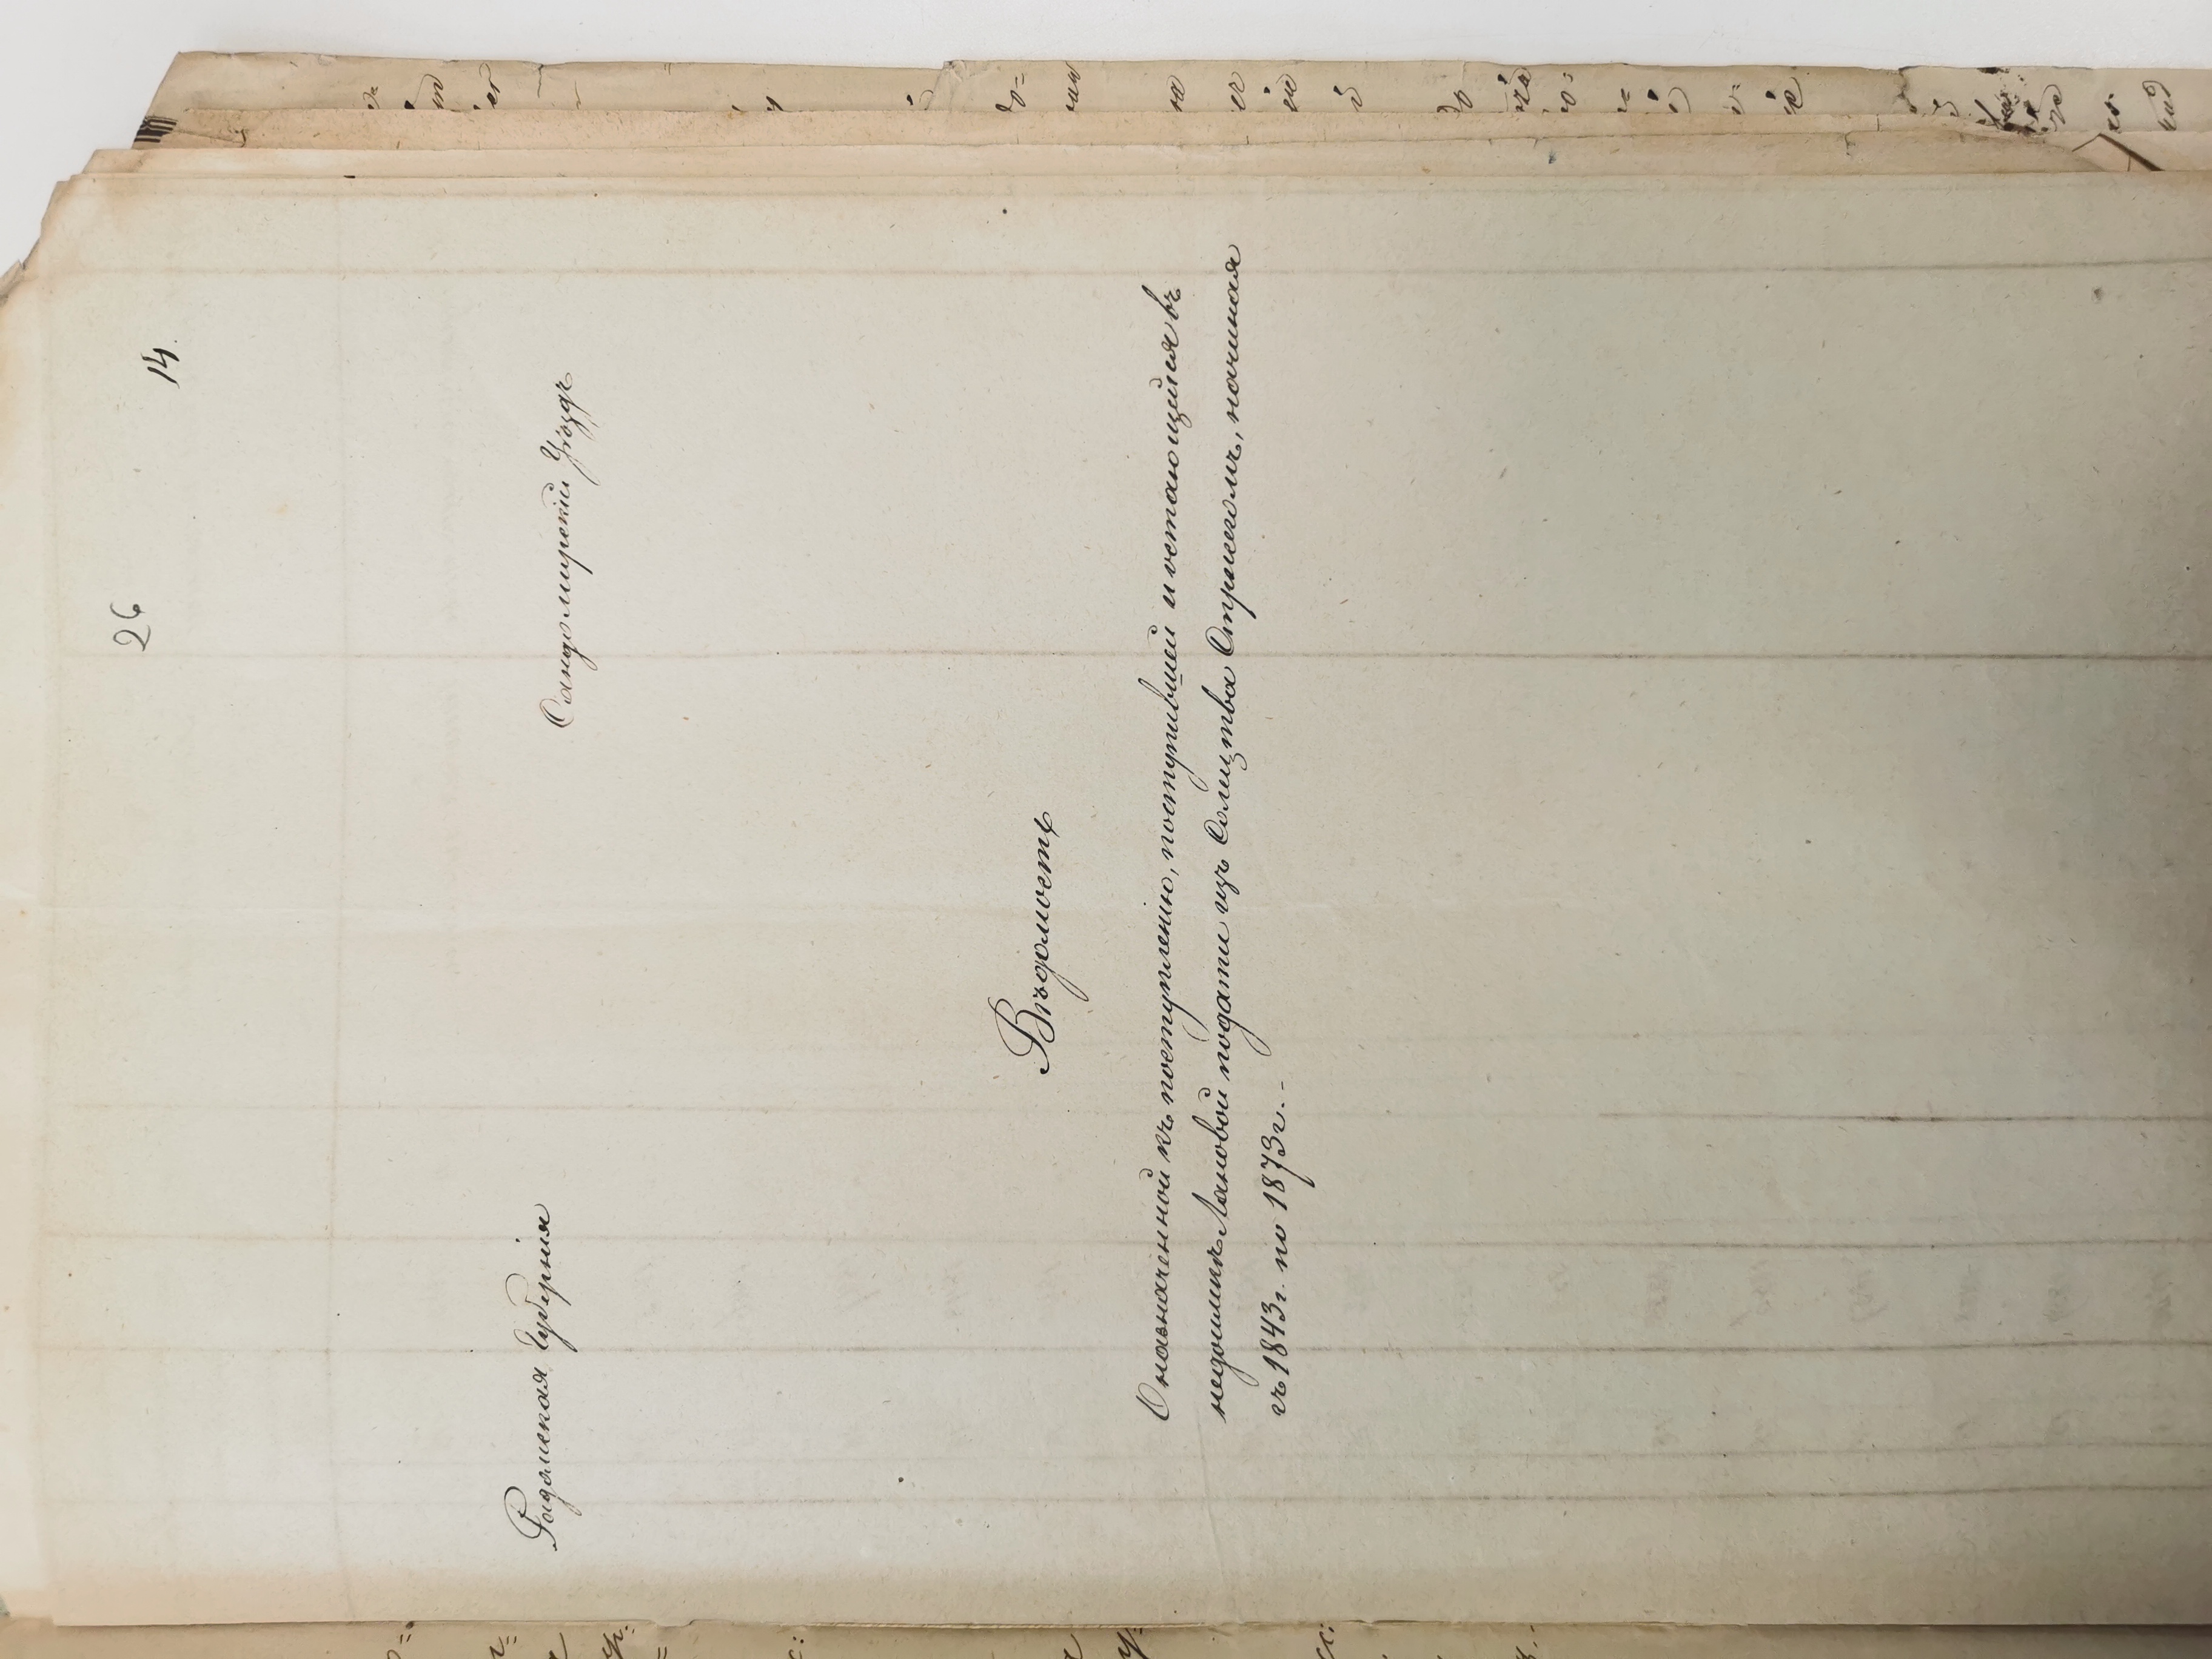 26
14.
Радомская Губернія
Сандомирскій Уѣздъ
Вѣдомость
О назначенной къ поступленію, поступившей и остающейся въ
недоимкѣ Лановой подати изъ Солецтва Стрижегомъ, начиная
съ 1843 г. по 1873 г.-